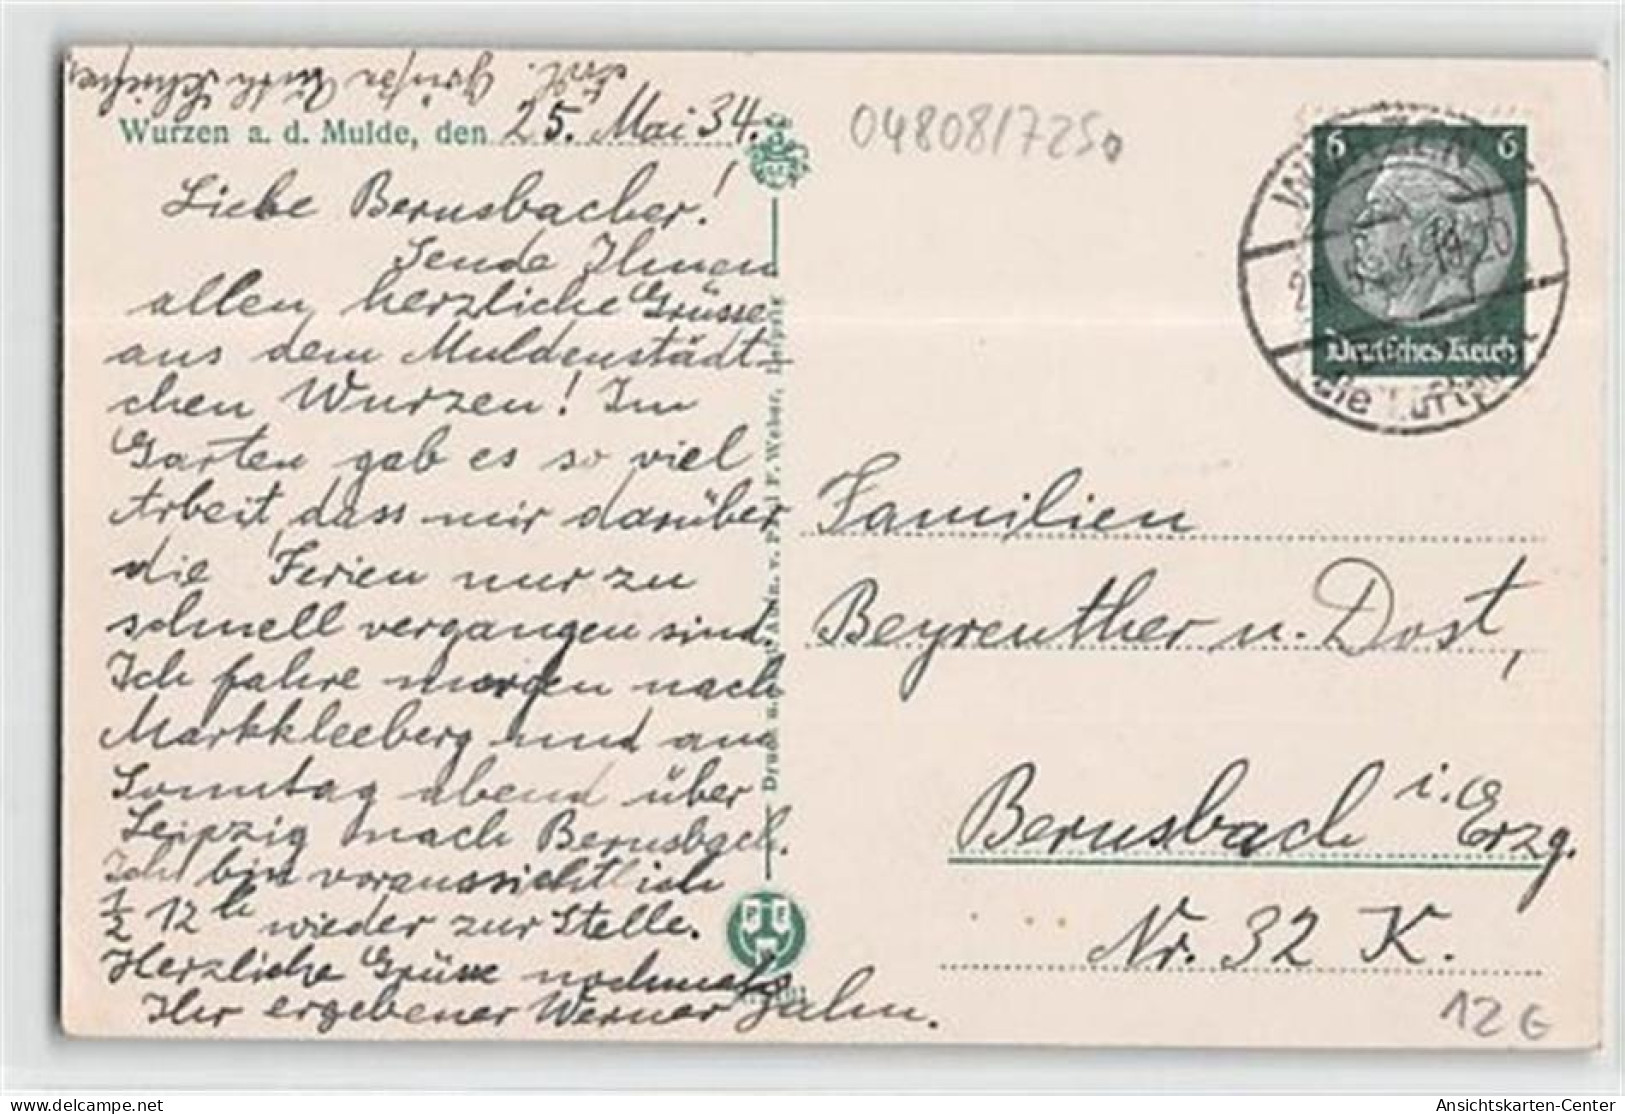 Frdl. Grüße Ruth
Wurzen a. d. Mulde, den 25. Mai 34.
Liebe Bernsbacher!
Sende Ihnen
allen herzliche Grüsse
aus dem Muldenstädt-
chen Wurzen! Im
Garten gab es so viel
Arbeit, dass mir darüber
die Ferien nur zu
schnell vergangen sind.
Ich fahre morgen nach
Markkleeberg und am
Sonntag abend über
Leipzig nach Bernsbach.
Ich bin voraussichtlich
1/2 12 h wieder zur Stelle.
Herzliche Grüsse nochmals
Ihr ergebener Werner Jahn.
Druck u. Aufn. v. Paul F. Weber, Leipzig
04808/7250
6 6
Deutsches Reich
WURZEN
19-20
Familien
Beyreuther u. Dost,
Bernsbach i. Erzg.
Nr. 32 K.
12 G
www.delcampe.net
Ansichtskarten-Center